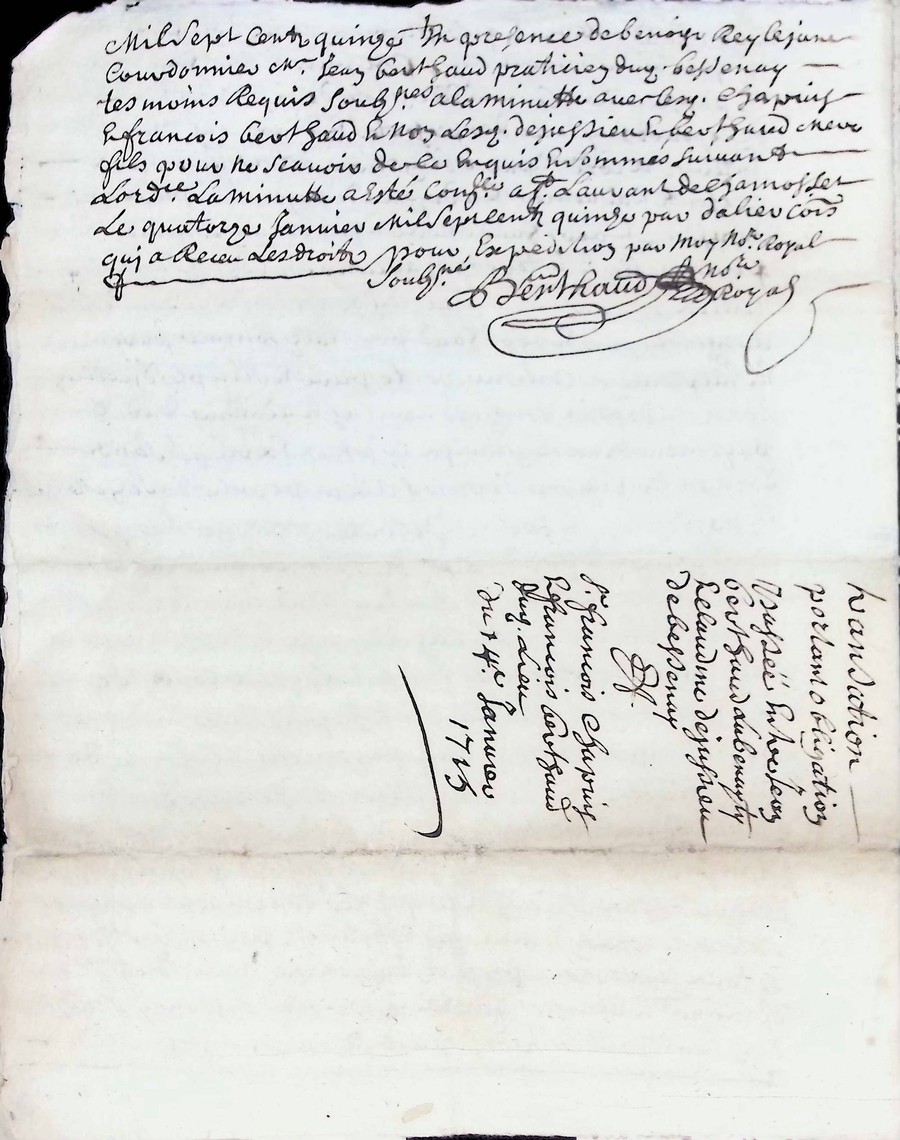 Mil Sept Centz quinze En presence de benoist Rey le jeune
Courdonnier Me. Jean berthaud praticien duq. bessenay
tesmoins Requis Soubsnes a la minutte avec lesq. Chapuis
Et francois berthaud Et non lesq. dejussieu Et berthaud mere
fils pour ne Scavoir de ce Enquis Et Sommes Suivant
Lordce. La minutte a Esté Conllee a St. Laurant de Chamosset
Le quatorze Janvier Mil Sept Centz quinze par dalier Cois
qui a Receu Les droits pour Expedition par Moy Nore. Royal
Soubsne
Berthaud nore
Royal
transaction
portant obligation
passée Entre Jean
berthaud
Et claudine dejussieu
de bessenay
Et
Sr. francois Chapuis
Et francois berthaud
duq. Lieu
du 14e Janvier
1715